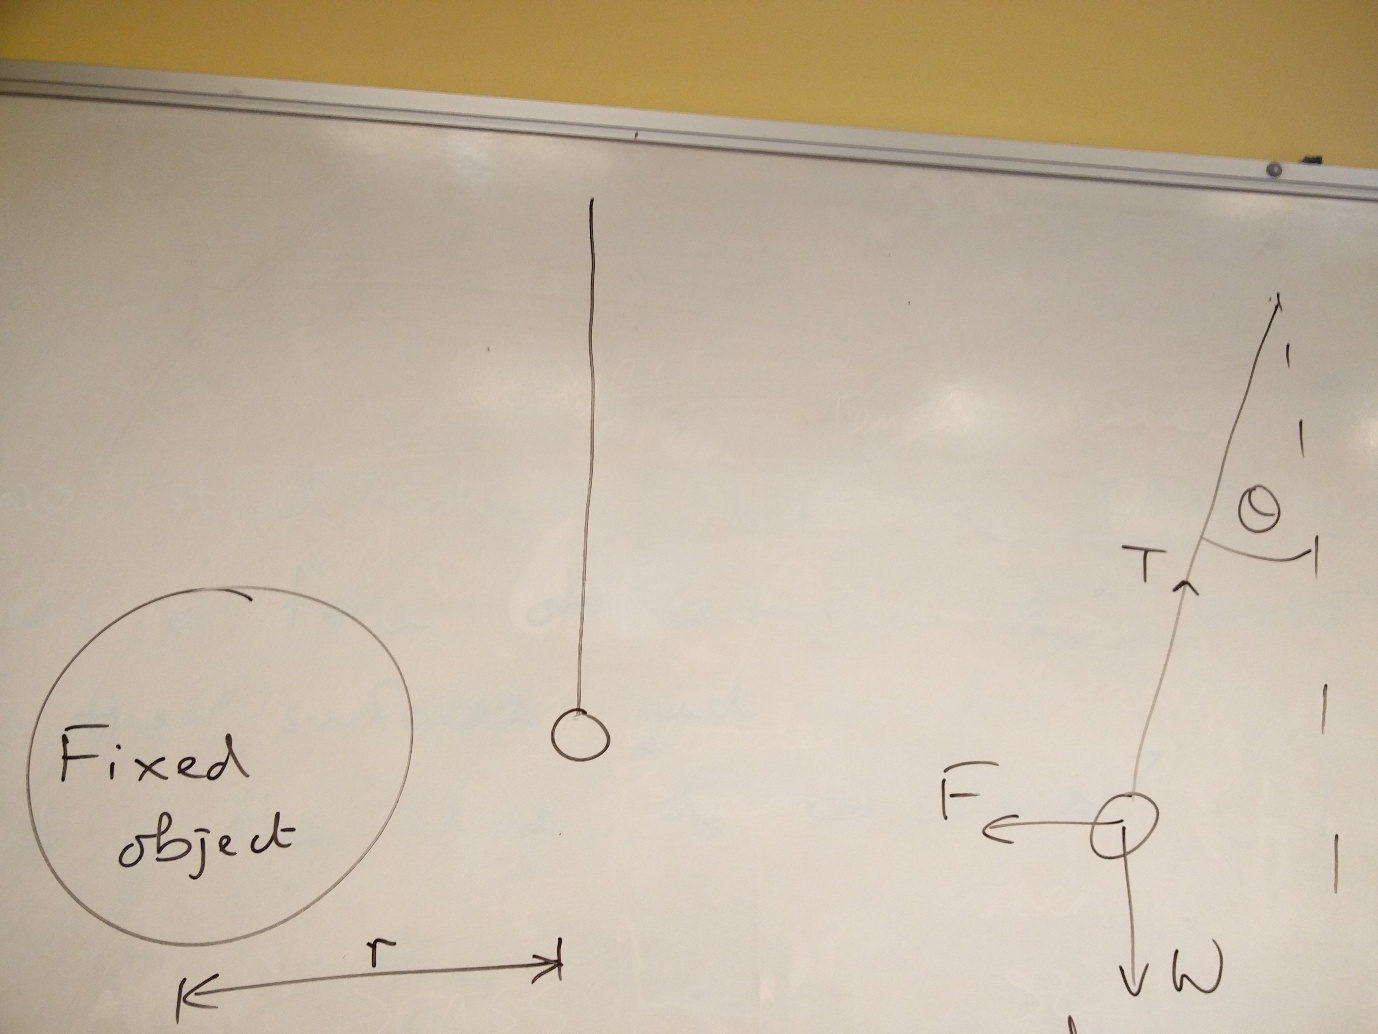 Fixed
object
r
T
θ
F
W